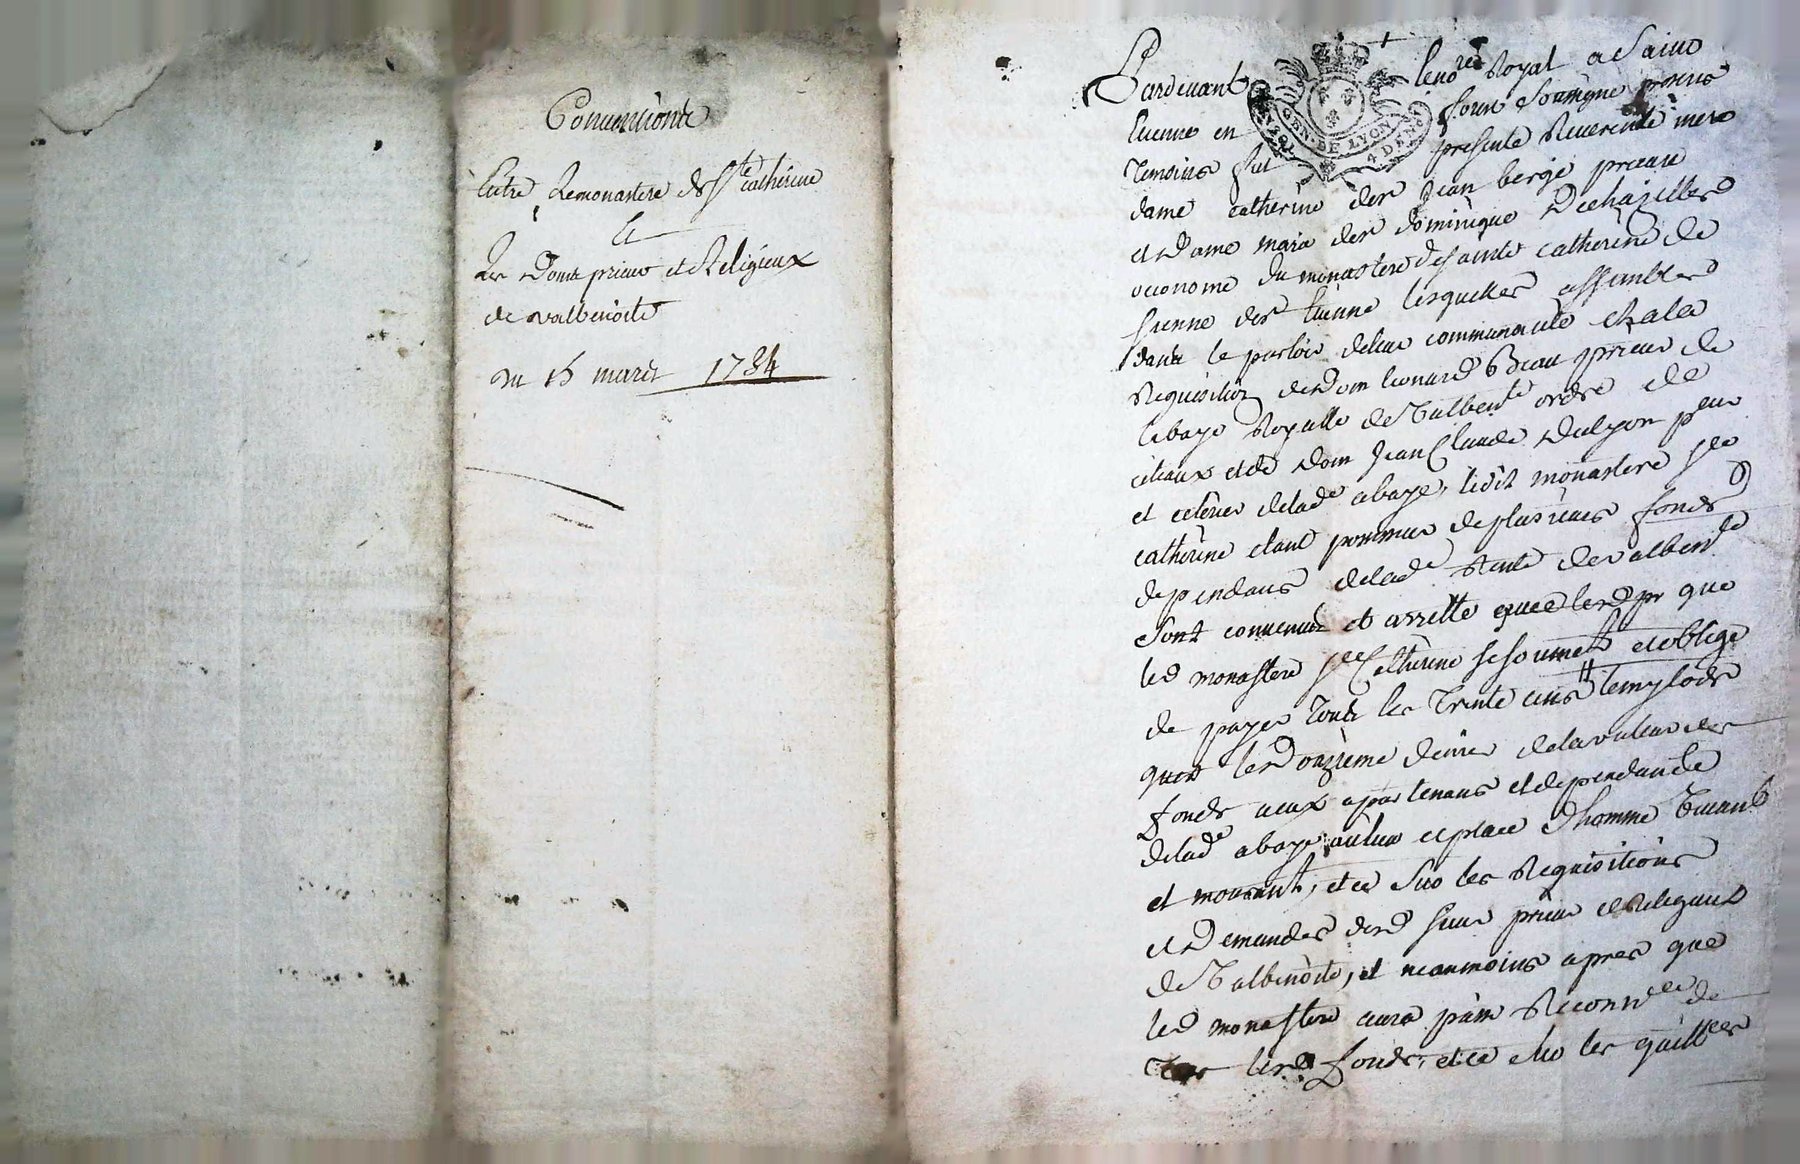 Conventions
Entre Le monastere de Ste catherine
Et
Les Doms prieur et Religieux
de valbenoite
Du 15 mars 1734
Pardevant le no.re Royal a Saint
Etienne en forest Soussigné presents
Temoins fut presente Reverende mere
dame catherine des Jean bergé prieure
et Dame marie des dominique Dechazelles
oeconome du monastere de sainte catherine de
sienne de St Etienne lesquelles assemblees
dans le parloir de leur communauté et a la
Requisition de Dom leonard Beau prieur de
labaye Royalle de Valbente ordre de
citeaux et de Dom Jean Claude Dulyon pcur
et celerier de lade abaye, ledit monastere Ste
catherine etant pommier de plusieurs fonds
dependans de lade Rente de valbente
Sont convenus et arretté que led pr que
led monastere Ste Catherine se soumet et oblige
de payer Tous les Trente ans
quers led onzieme denier de la valeur des
fonds a eux apartenans et dependants
de lad abaye au lieu et place d'homme Vivant
et mourant, et ce Sur les Requisitions
et Demandes desd sieurs prieur et Religieux
de Valbenoite, et neanmoins apres que
led monastere aura Reconnee de
lesd fonds, et ce Sur les quittces
GEN. DE LYON 4 DEN